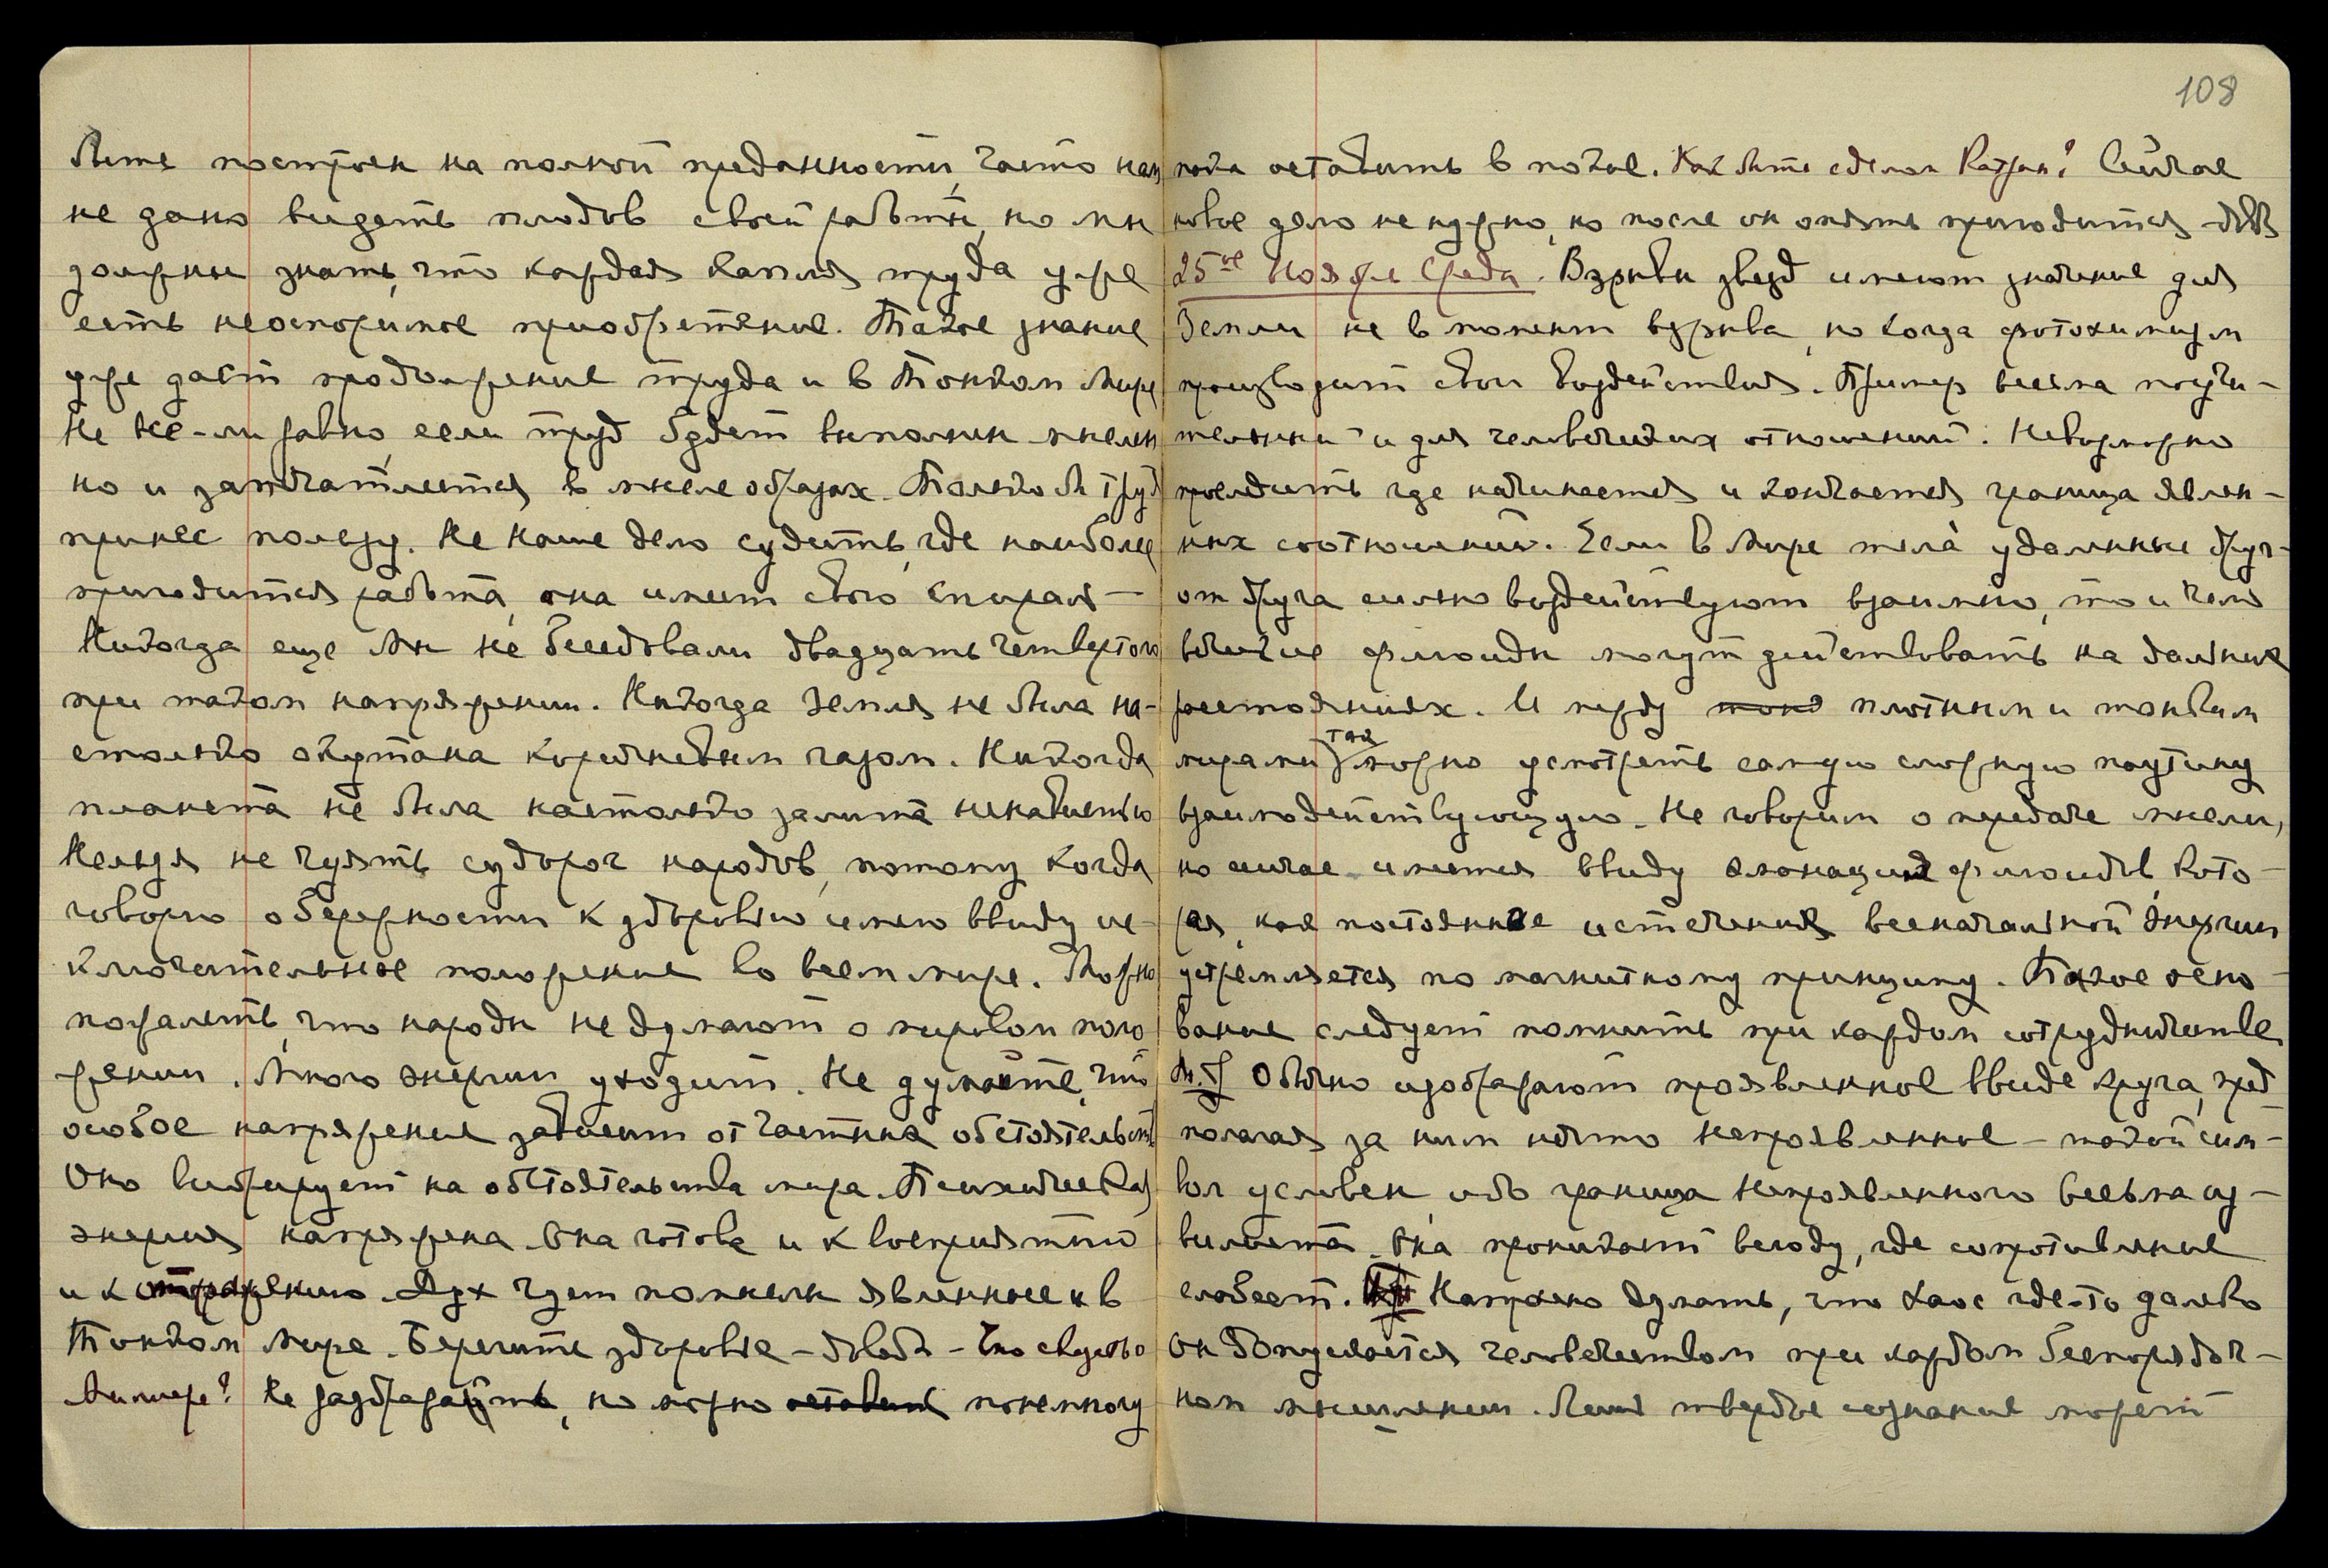 быть построен на полной преданности, часто нам
не дано видеть плодов своей работы, но мы
должны знать, что каждая капля труда уже
есть неоспоримое приобретение. Такое знание
уже дает продолжение труда и в Тонком Мире
Не всё-ли равно, если труд будет выполнен мыслен
но и запечатлеется в мыслеобразах. Только б труд
принес пользу. Не Наше дело судить, где наиболее
пригодится работа, она имеет свою спираль —
Никогда еще Мы не беседовали двадцать четвертого
при таком напряжении. Никогда Земля не была на-
столько окутана коричневым газом. Никогда
планета не была настолько залита ненавистью
Нельзя не чуять судорог народов, потому когда
говорю о бережности к здоровью имею ввиду ис-
ключительное положение во всем мире. Можно
пожалеть, что народы не думают о мировом поло
жении. Много энергии уходит. Не думайте, что
особое напряжение зависит от частных обстоятельств
Оно вибрирует на обстоятельства мира. Психическая
энергия напряжена. Она готова и к восприятию
и к отражению. Дух чует полчища явленные и в
Тонком Мире. Берегите здоровье – довольно –
не раздражайте, но можно оставить понемногу
108
пока оставить в покое. Как быть с делом Сейчас
новое дело не нужно, но после он опять пригодится
25ое Ноября Среда. Взрывы звезд имеют значение для
Земли не в момент взрыва, но когда фотохимизм
производит свои воздействия. Пример весьма поучи-
тельный и для человеческих отношений. Невозможно
проследить где начинается и кончается граница явлен-
ных соотношений. Если в Мире тела удаленные друг-
от друга сильно воздействуют взаимно, то и чело
веческие флюиды могут действовать на дальних
расстояниях. И между тонк плотным и тонким
мирами так можно усмотреть самую сложную паутину
взаимодействующую. Не говорим о передаче мысли,
но сейчас имеется ввиду эманация флюидов, кото-
рая, как постоянное истечение всеначальной энергии
устремляется по магнитному принципу. Такое осно-
вание следует помнить при каждом сотрудничестве
М.О Обычно изображают проявленное ввиде круга, пред
полагая за ним нечто непроявленное – такой сим-
вол условен, ибо граница Непроявленного весьма из-
вилиста. Она проникает всюду, где сопротивление
слабеет. Напрасно думать, что хаос где-то далеко
Он допускается человечеством при каждом беспорядоч-
ном мышлении. Лишь твердое сознание может